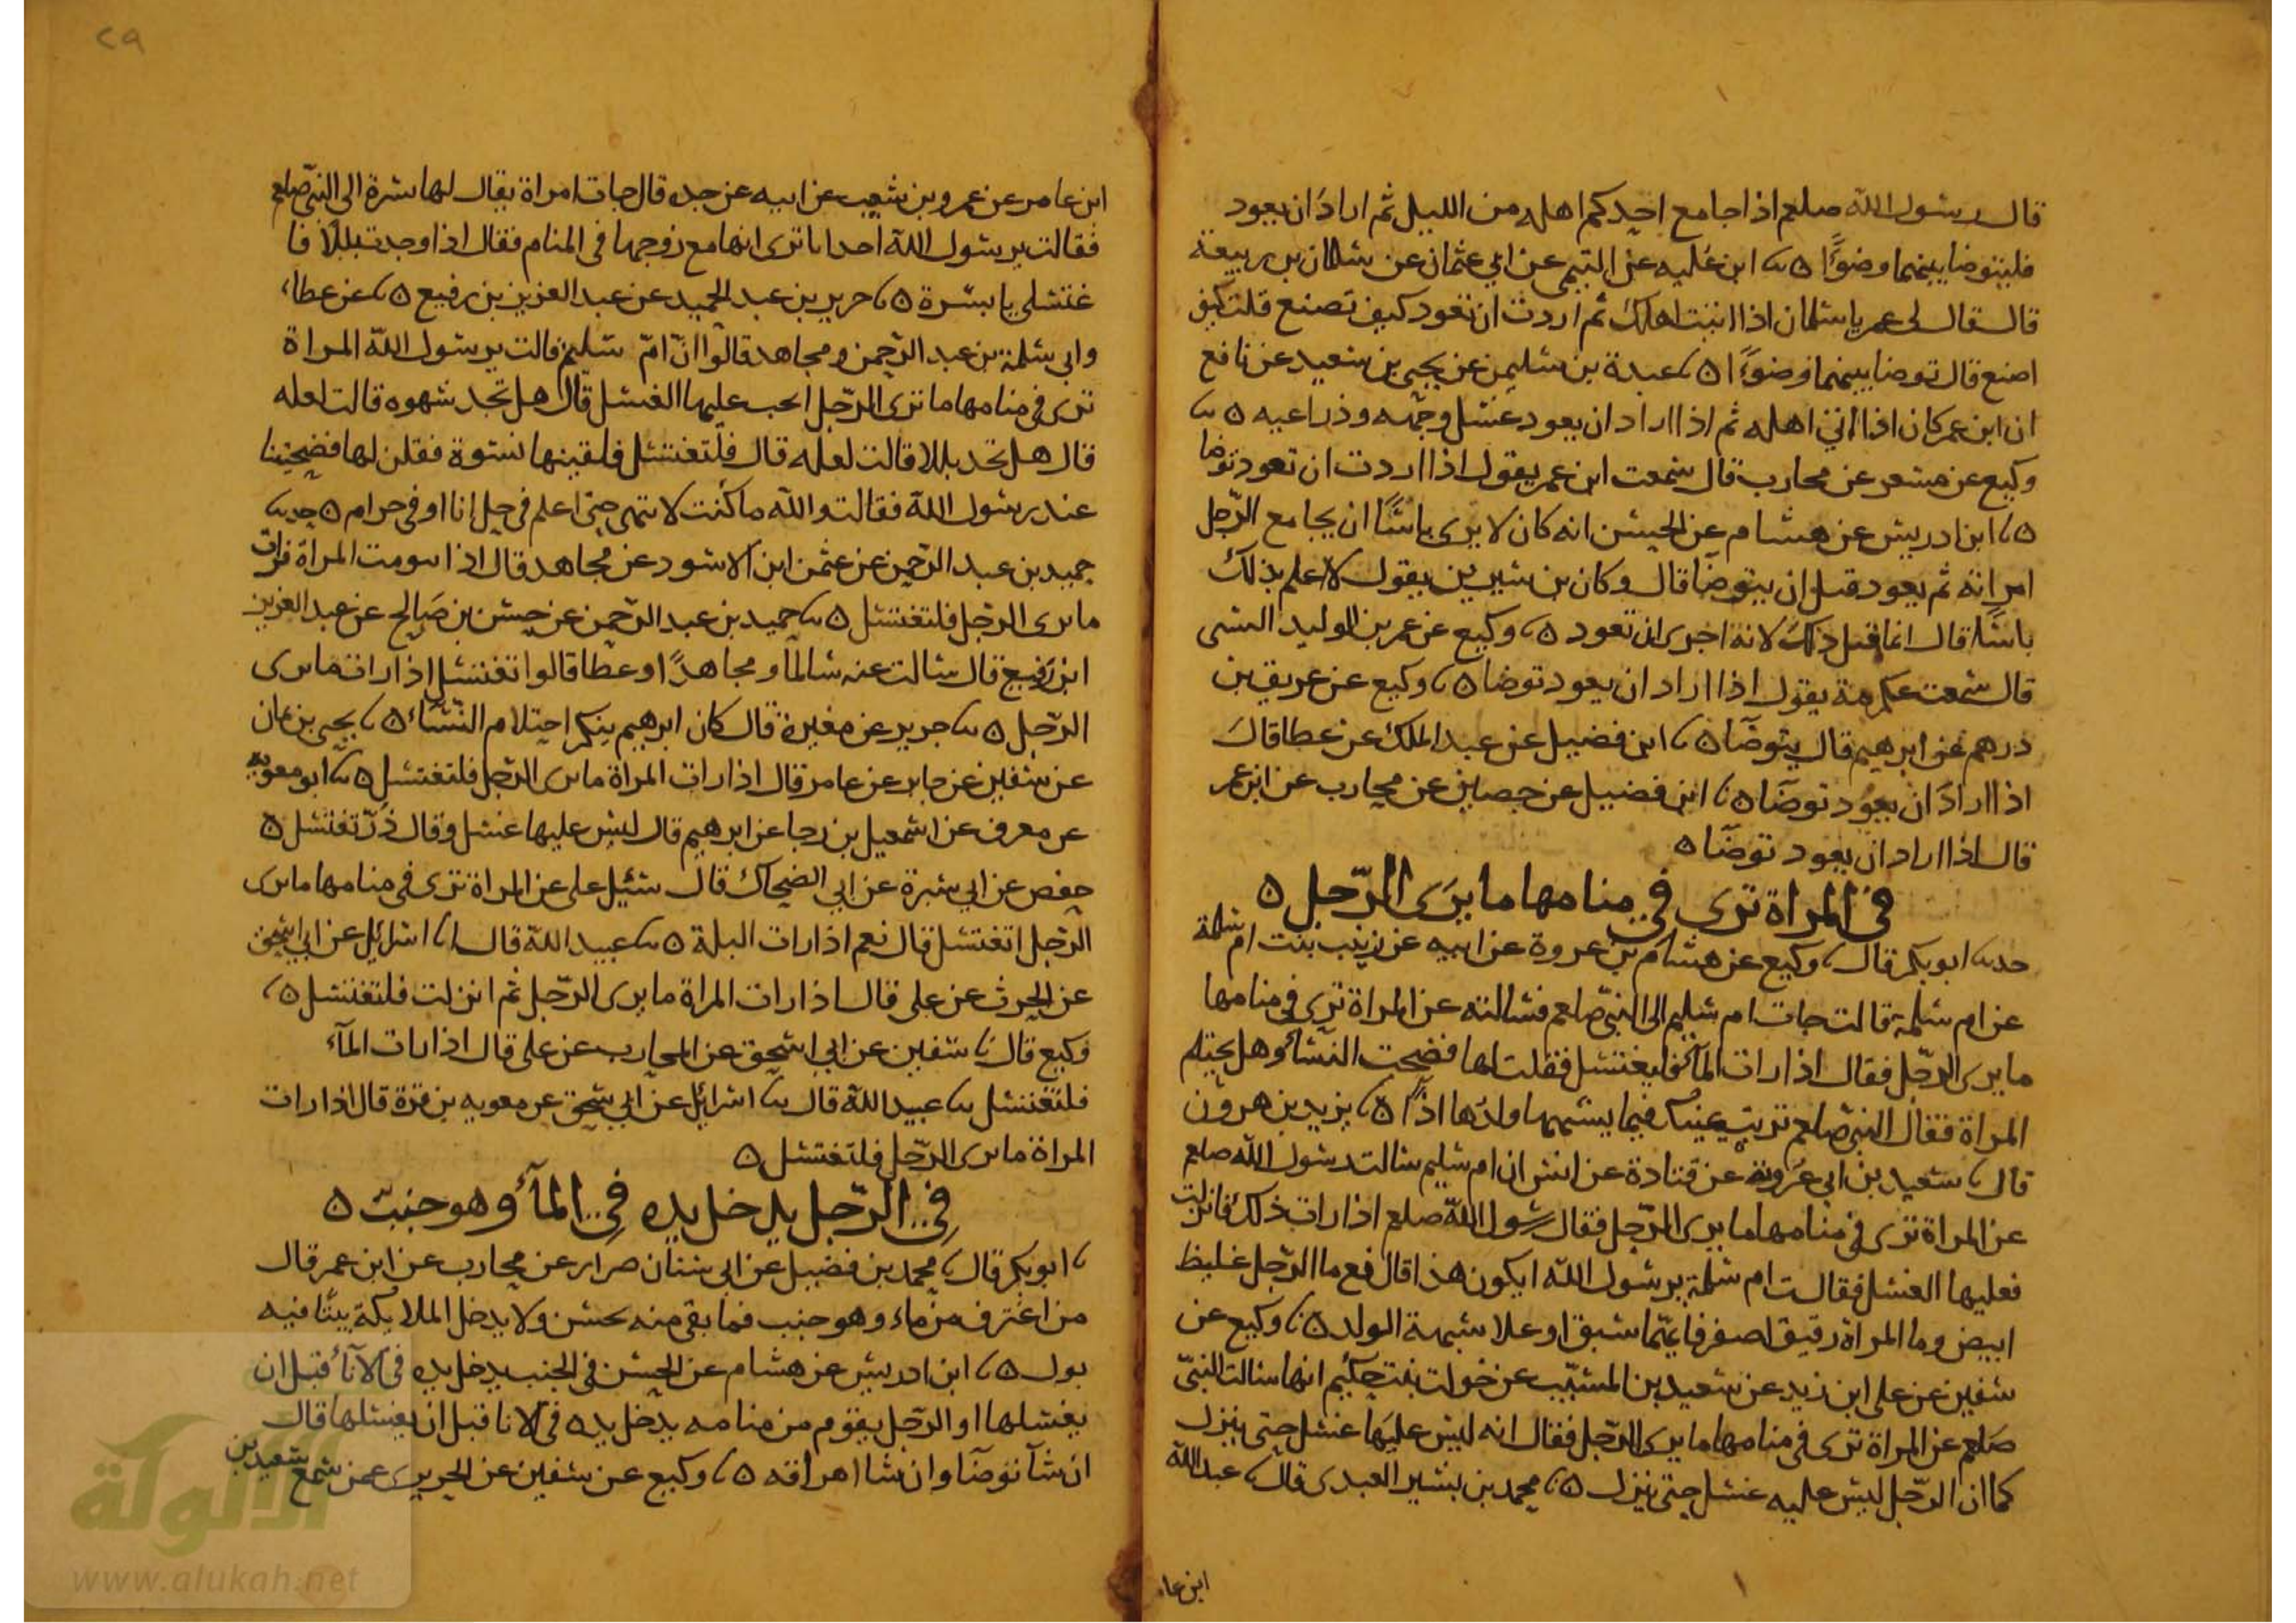 قال رسول الله صلعم اذا جامع احدكم اهله من الليل ثم اراد ان يعود
فليتوضا بينهما وضوءًا ابن علية عن التيمي عن ابي عثمان عن سلمان بن ربيعة
قال قال لي عمر يا سلمان اذا اتيت اهلك ثم اردت ان تعود كيف تصنع قلت كيف
اصنع قال توضا بينهما وضوءًا عبدة بن سليمن عن يحيى بن سعيد عن نافع
ان ابن عمر كان اذا اتى اهله ثم اذا اراد ان يعود غسل وجهه وذراعيه
وكيع عن مسعر عن محارب قال سمعت ابن عمر يقول اذا اردت ان تعود توضا
ابن ادريس عن هشام عن الحسن انه كان لا يرى باسًا ان يجامع الرجل
امراته ثم يعود قبل ان يتوضا قال وكان بن سيرين يقول لا اعلم بذلك
باسًا قال انما قيل ذلك لانه احرى ان تعود وكيع عن عمر بن الوليد الشنى
قال سمعت عكرمة يقول اذا اراد ان يعود توضا وكيع عن عريف بن
درهم عن ابرهيم قال يتوضا ابن فضيل عن عبد الملك عن عطا قال
اذا اراد ان يعود توضا ابن فضيل عن حصين عن محارب عن ابن عمر
قال اذا اراد ان يعود توضا
في المراة ترى في منامها ما يرى الرجل
حدثنا ابو بكر قال وكيع عن هشام بن عروة عن ابيه عن زينب بنت ام سلمة
عن ام سلمة قالت جات ام سليم الى النبي صلعم فسالته عن المراة ترى في منامها
ما يرى الرجل فقال اذا رات المآ فليغتسل فقلت لها فضحت النسآ وهل يحتلم
المراة فقال النبي صلعم تربت يمينك فبما يشبهها ولدها اذًا يزيد بن هرون
قال سعيد بن ابي عروبة عن قتادة عن انس ان ام سليم سالت رسول الله صلعم
عن المراة ترى في منامها ما يرى الرجل فقال رسول الله صلعم اذا رات ذلك فانزلت
فعليها الغسل فقالت ام سلمة يرسول الله ايكون هذا قال نعم ما الرجل غليظ
ابيض وما المراة رقيق اصفر فايهما سبق او علا شبهه الولد وكيع عن
سفين عن على ابن زيد عن سعيد بن المسيب عن خولت بنت حكيم انها سالت النبي
صلعم عن المراة ترى في منامها ما يرى الرجل فقال انه ليس عليها غسل حتى ينزل
كما ان الرجل ليس عليه غسل حتى ينزل محمد بن بشير العبدى قال عبد الله
ابن عا
٢٩
ابن عامر عن عمرو بن شعيب عن ابيه عن جده قال جات امراة يقال لها بسرة الى النبي صلعم
فقالت يرسول الله احدانا ترى انها مع زوجها في المنام فقال اذا وجدت بللًا فا
غتسلى يا بسرة جرير بن عبد الحميد عن عبد العزيز بن رفيع عن عطاء
وابي سلمة بن عبد الرحمن ومجاهد قالوا ان ام سليم قالت يرسول الله المراة
ترى في منامها ما ترى الرجل ايجب عليها الغسل قال هل تجد شهوه قالت لعله
قال هل تجد بللا قالت لعله قال فلتغتسل فلقينها نسوة فقلن لها فضحتينا
عند رسول الله فقالت والله ما كنت لانتهى حتى اعلم في حل انا او في حرام حدثنا
حميد بن عبد الرحمن عن عثمن ابن الاسود عن مجاهد قال اذا المراة فرات
ما يرى الرجل فلتغتسل حميد بن عبد الرحمن عن حسن بن صالح عن عبد العزيز
ابن رفيع قال سالت عنه سالمًا ومجاهدًا وعطا قالوا تغتسل اذا رات ما يرى
الرجل جرير عن مغيرة قال كان ابرهيم ينكر احتلام النسآء يحيى بن يمان
عن سفين عن جابر عن عامر قال اذا رات المراة ما يرى الرجل فلتغتسل ابو معويه
عن معرف عن اسمعيل بن رجا عن ابرهيم قال ليس عليها غسل وقال ذر تغتسل
حفص عن ابي سبرة عن ابي الضحاك قال سئيل على عن المراة ترى في منامها ما يرى
الرجل اتغتسل قال نعم اذا رات البلة عبيد الله قال اسرائيل عن ابي اسحق
عن الحرث عن على قال اذا رات المراة ما يرى الرجل ثم انزلت فلتغتسل
وكيع قال سفين عن ابي اسحق عن المحارب عن على قال اذا رات المآء
فلتغتسل عبيد الله قال اسرائيل عن ابي سحق عن معويه بن قرة قال اذا رات
المراة ما يرى الرجل فلتغتسل
في الرجل يدخل يده في المآ وهو جنب
ابو بكر قال محمد بن فضيل عن ابي سنان ضرار عن محارب عن ابن عمر قال
من اغترف من ماء وهو جنب فما بقى منه نجس ولا يدخل الملايكة بيتًا فيه
بول ابن ادريس عن هشام عن الحسن في الجنب يدخل يده في الانآ قبل ان
يغسلها او الرجل يقوم من منامه يدخل يده في الانا قبل ان يغسلها قال
ان شآ توضا وان شا اهراقه وكيع عن سفين عن الجريري عمن سمع سعيد بن
الألوكة
www.alukah.net